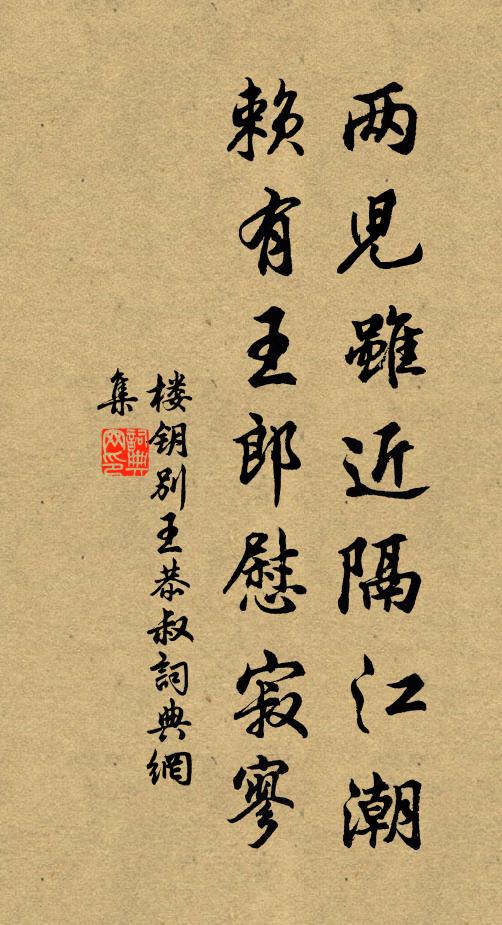 两児雖近隔江潮
赖有王郎慰寂寥
楼钥别王恭叔詞典網
集
詞典網印